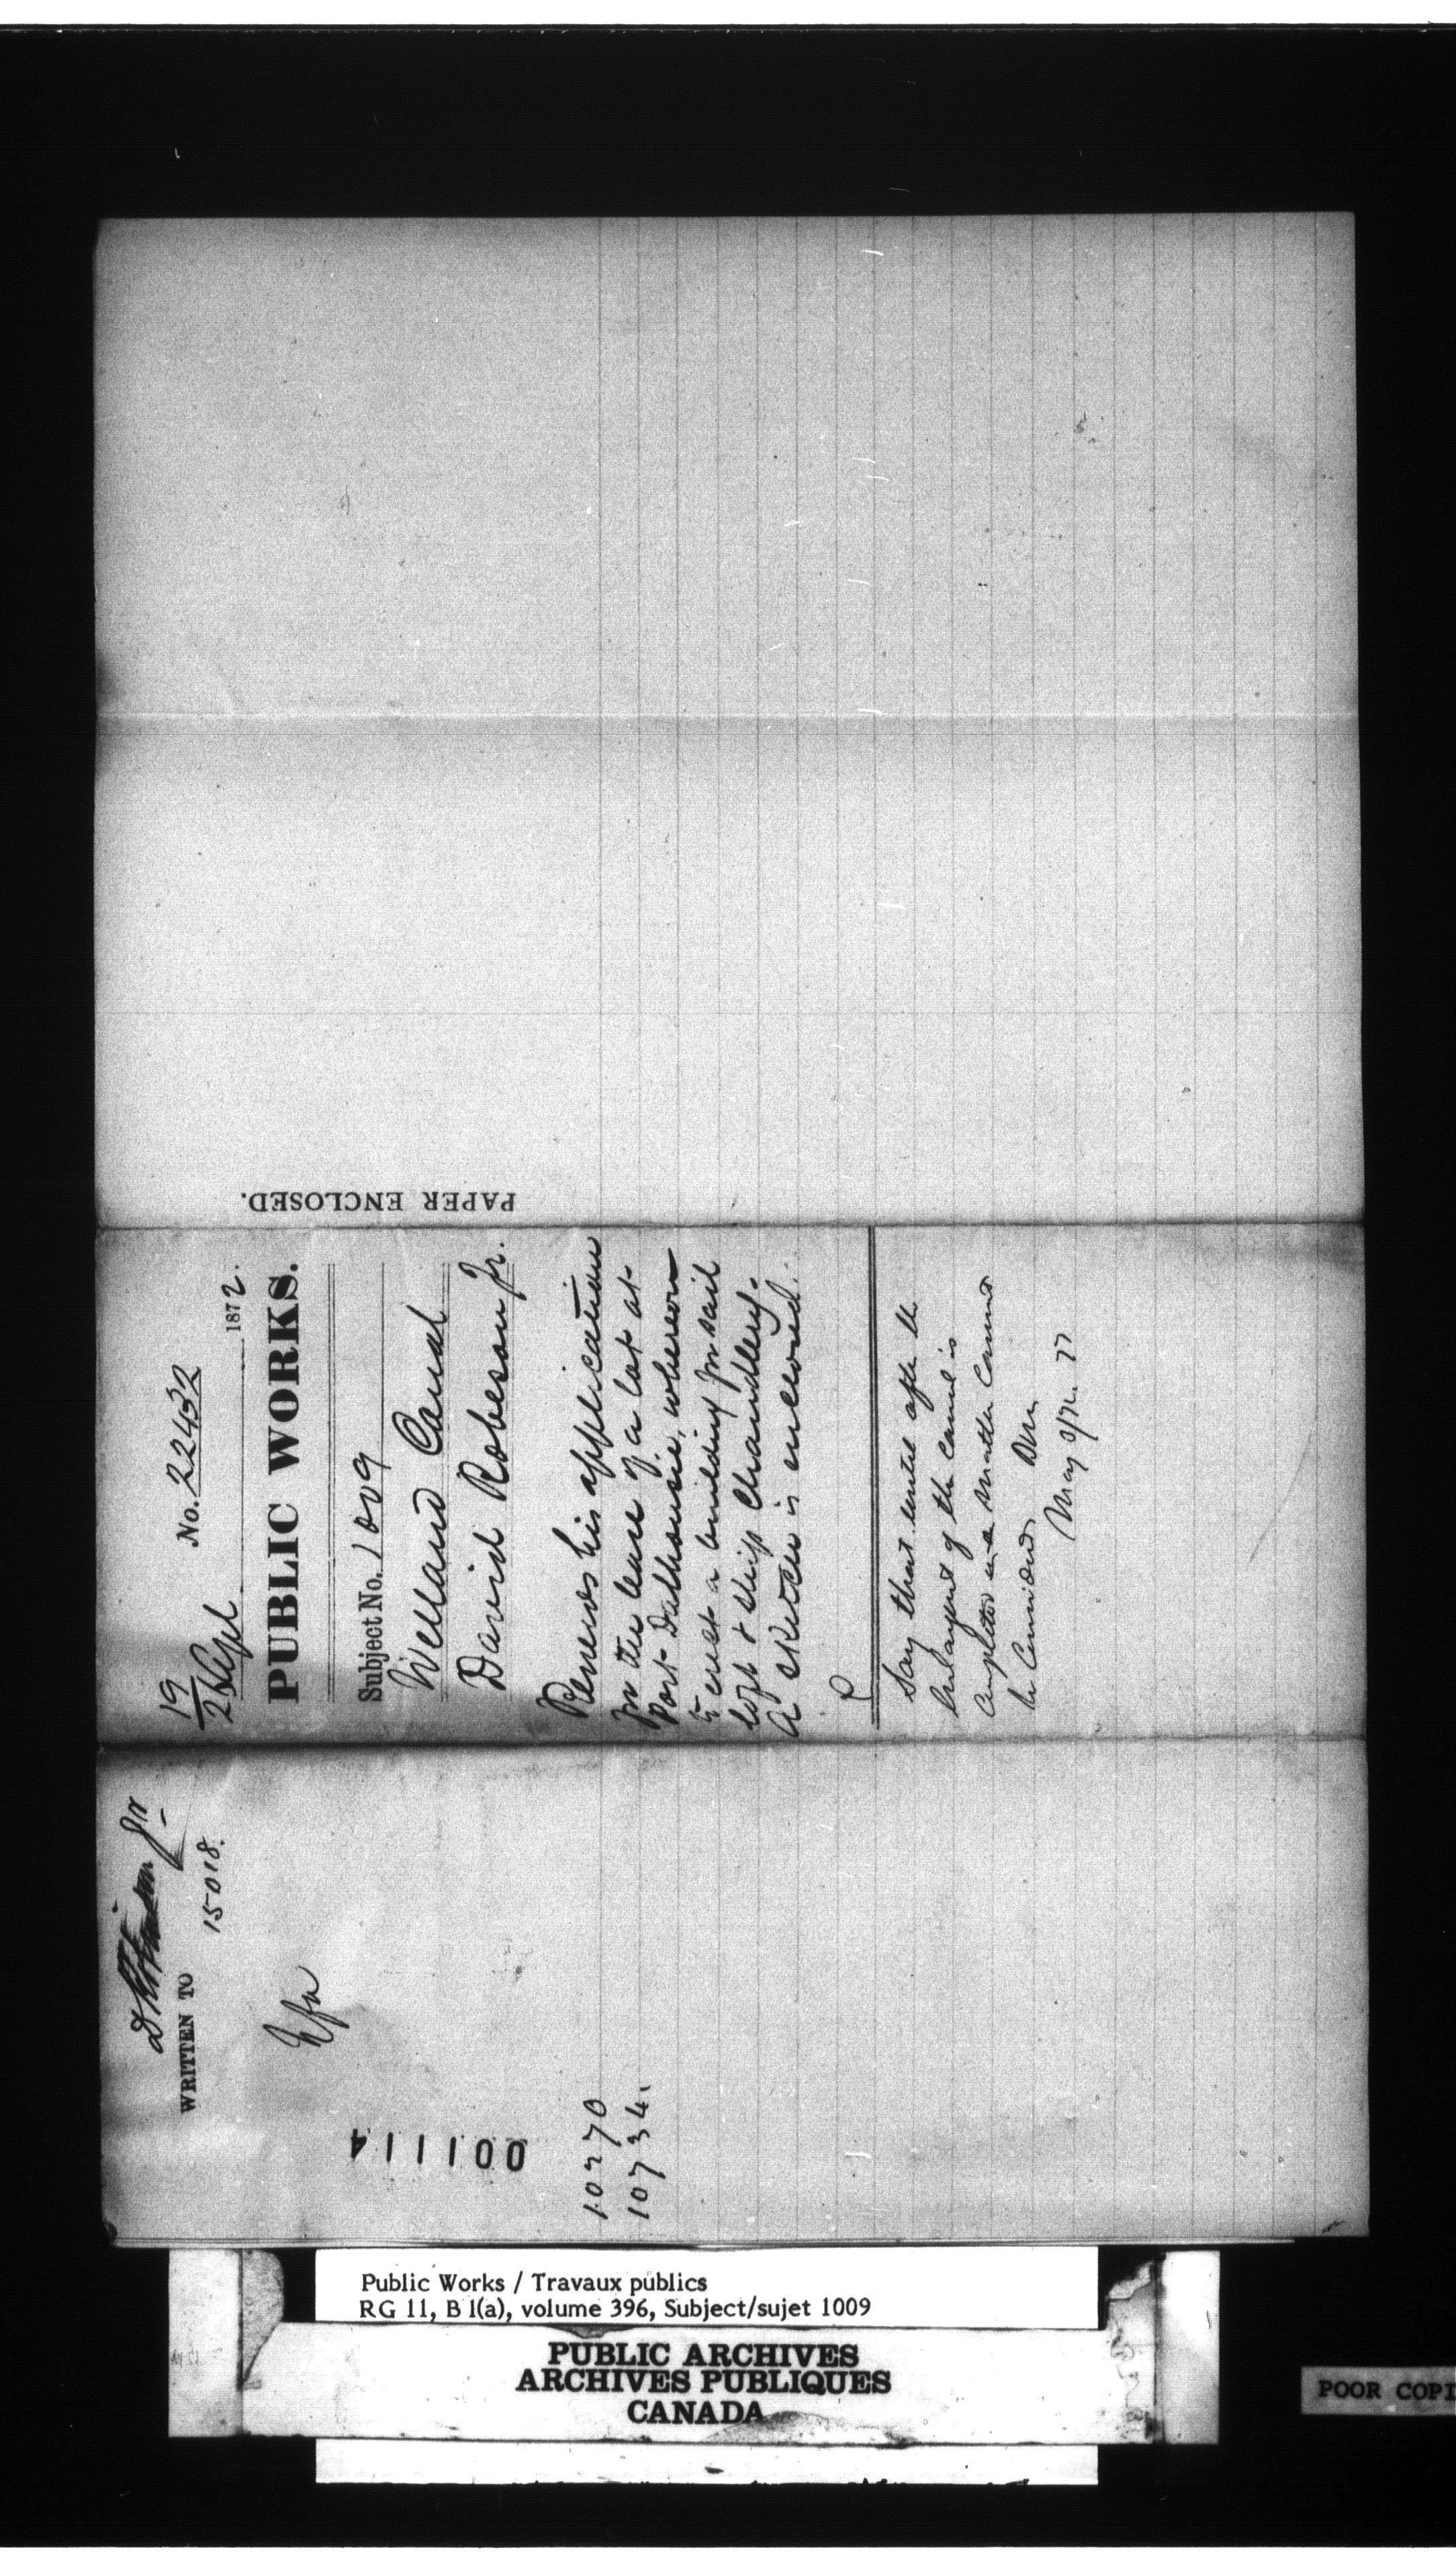 D Roberson Jr
WRITTEN TO
15018.
001114
10270
10734.
19
26 Sept 1872.
No. 22432
PUBLIC WORKS.
Subject No. 1009
Welland Canal
David Roberson Jr.
Renews his application
for the lease of a lot at
Port Dalhousie, whereon
to erect a building for sail
loft & ship chandlery.
A sketch is enclosed.
Say that until after the
Enlargement of the Canal is
completed the matter cannot
be considered
PAPER ENCLOSED.
Public Works / Travaux publics
RG 11, B 1(a), volume 396, Subject/sujet 1009
PUBLIC ARCHIVES
ARCHIVES PUBLIQUES
CANADA
POOR COPI